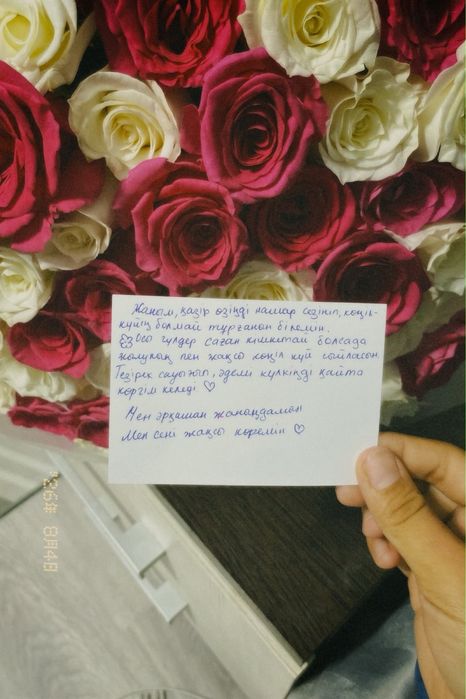 Жаным, қазір өзіңді нашар сезініп, көңіл-
күйің болмай тұрғанын білемін.
Осы гүлдер саған кішкентай болсада
жылулық пен жақсы көңіл күй сыйласын.
Тезірек сауығып, әдемі күлкіңді қайта
көргім келеді ♡
Мен әрқашан жаныңдамын
Мен сені жақсы көремін ♡
'26年 8月4日